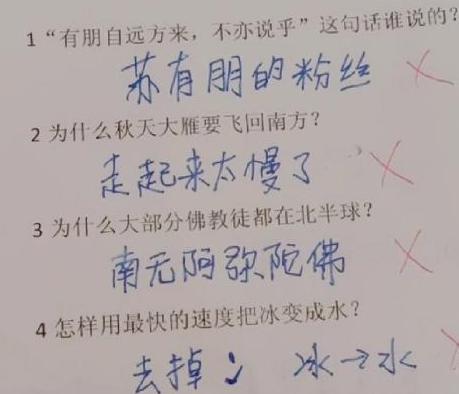 1“有朋自远方来，不亦说乎”这句话谁说的？
苏有朋的粉丝
2 为什么秋天大雁要飞回南方？
走起来太慢了
3 为什么大部分佛教徒都在北半球？
南无阿弥陀佛
4 怎样用最快的速度把冰变成水？
去掉冫 冰→水